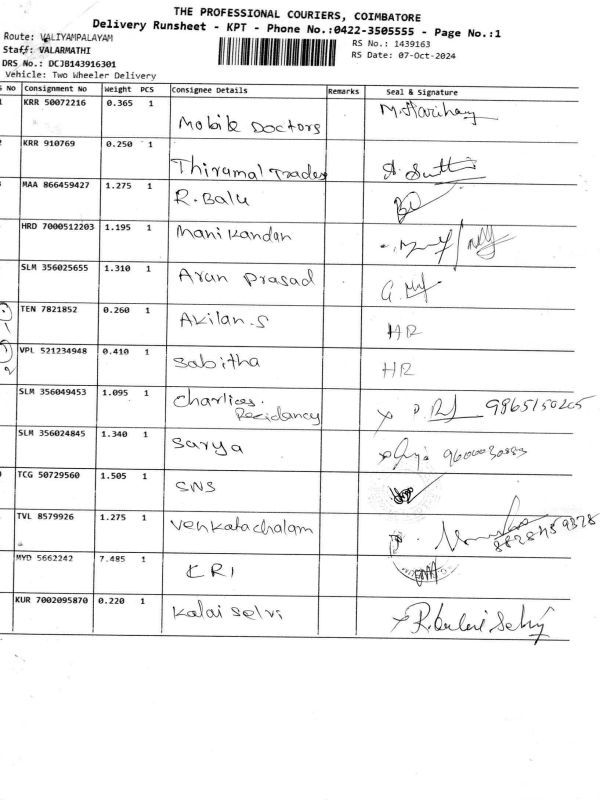 THE PROFESSIONAL COURIERS, COIMBATORE
Delivery Runsheet - KPT - Phone No.:0422-3505555 - Page No.:1
Route: VALIYAMPALAYAM
RS No.: 1439163
Staff: VALARMATHI
RS Date: 07-Oct-2024
DRS No.: DCJB143916301
Vehicle: Two Wheeler Delivery
No Consignment No Weight PCS Consignee Details Remarks Seal & Signature
KRR 50072216 0.365 1
Mobile Doctors M. Harihary
KRR 910769 0.250 1
Thirumal Trades
MAA 866459427 1.275 1
R. Balu
HRD 7000512203 1.195 1
Mani Kandan
SLM 356025655 1.310 1
Arun Prasad
TEN 7821852 0.260 1
Akilan.S HR
VPL 521234948 0.410 1
Sabitha HR
SLM 356049453 1.095 1
Charlies.
Recidancy
SLM 356024845 1.340 1
Sarya
TCG 50729560 1.505 1
SNS
TVL 8579926 1.275 1
Venkatachalam
MYD 5662242 7.485 1
KRI
KUR 7002095870 0.220 1
Kalai Selvi